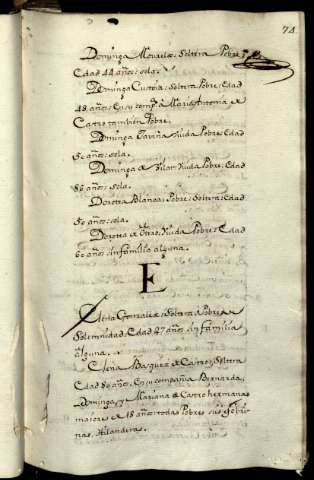 74
Dominga Mourelos Soltera Pobre
Edad 44 años: sola.
Dominga Custoia: Soltera Pobre: Edad
48. años: Ensu comp.ª Maria Antonia de
Castro tambien Pobre.
Dominga Fariña viuda Pobre: Edad
50 años: sola.
Dominga de Vilar viuda Pobre: Edad
56 años: sola.
Dorotea Blanca: Pobre: Soltera: Edad
50 años: sola.
Dorotea de Otero: Viuda Pobre: Edad
60 años: sin familia alguna.
E
Elena Gonzalez: Soltera Pobre de
Solemnidad: Edad 47 años sin familia
alguna.
Elena Basquez de Castro: Soltera
Edad 80 años, Ensu compañia Bernarda,
Dominga, y Mariana de Castro hermanas
maiores de 18 años: todas Pobres sus sobri-
nas, Hilanderas.